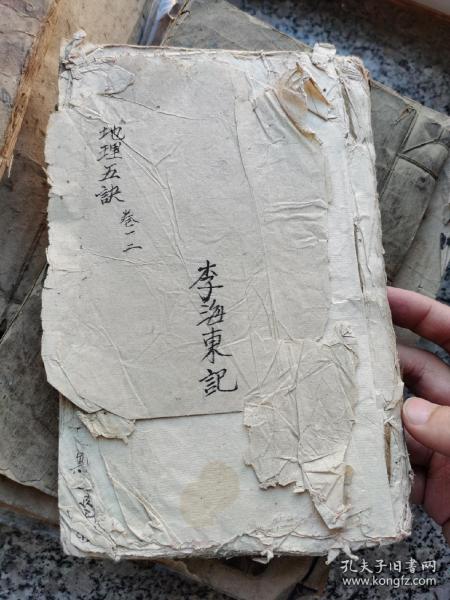 地理五訣 卷一二
李海東記
孔夫子旧书网
www.kongfz.com